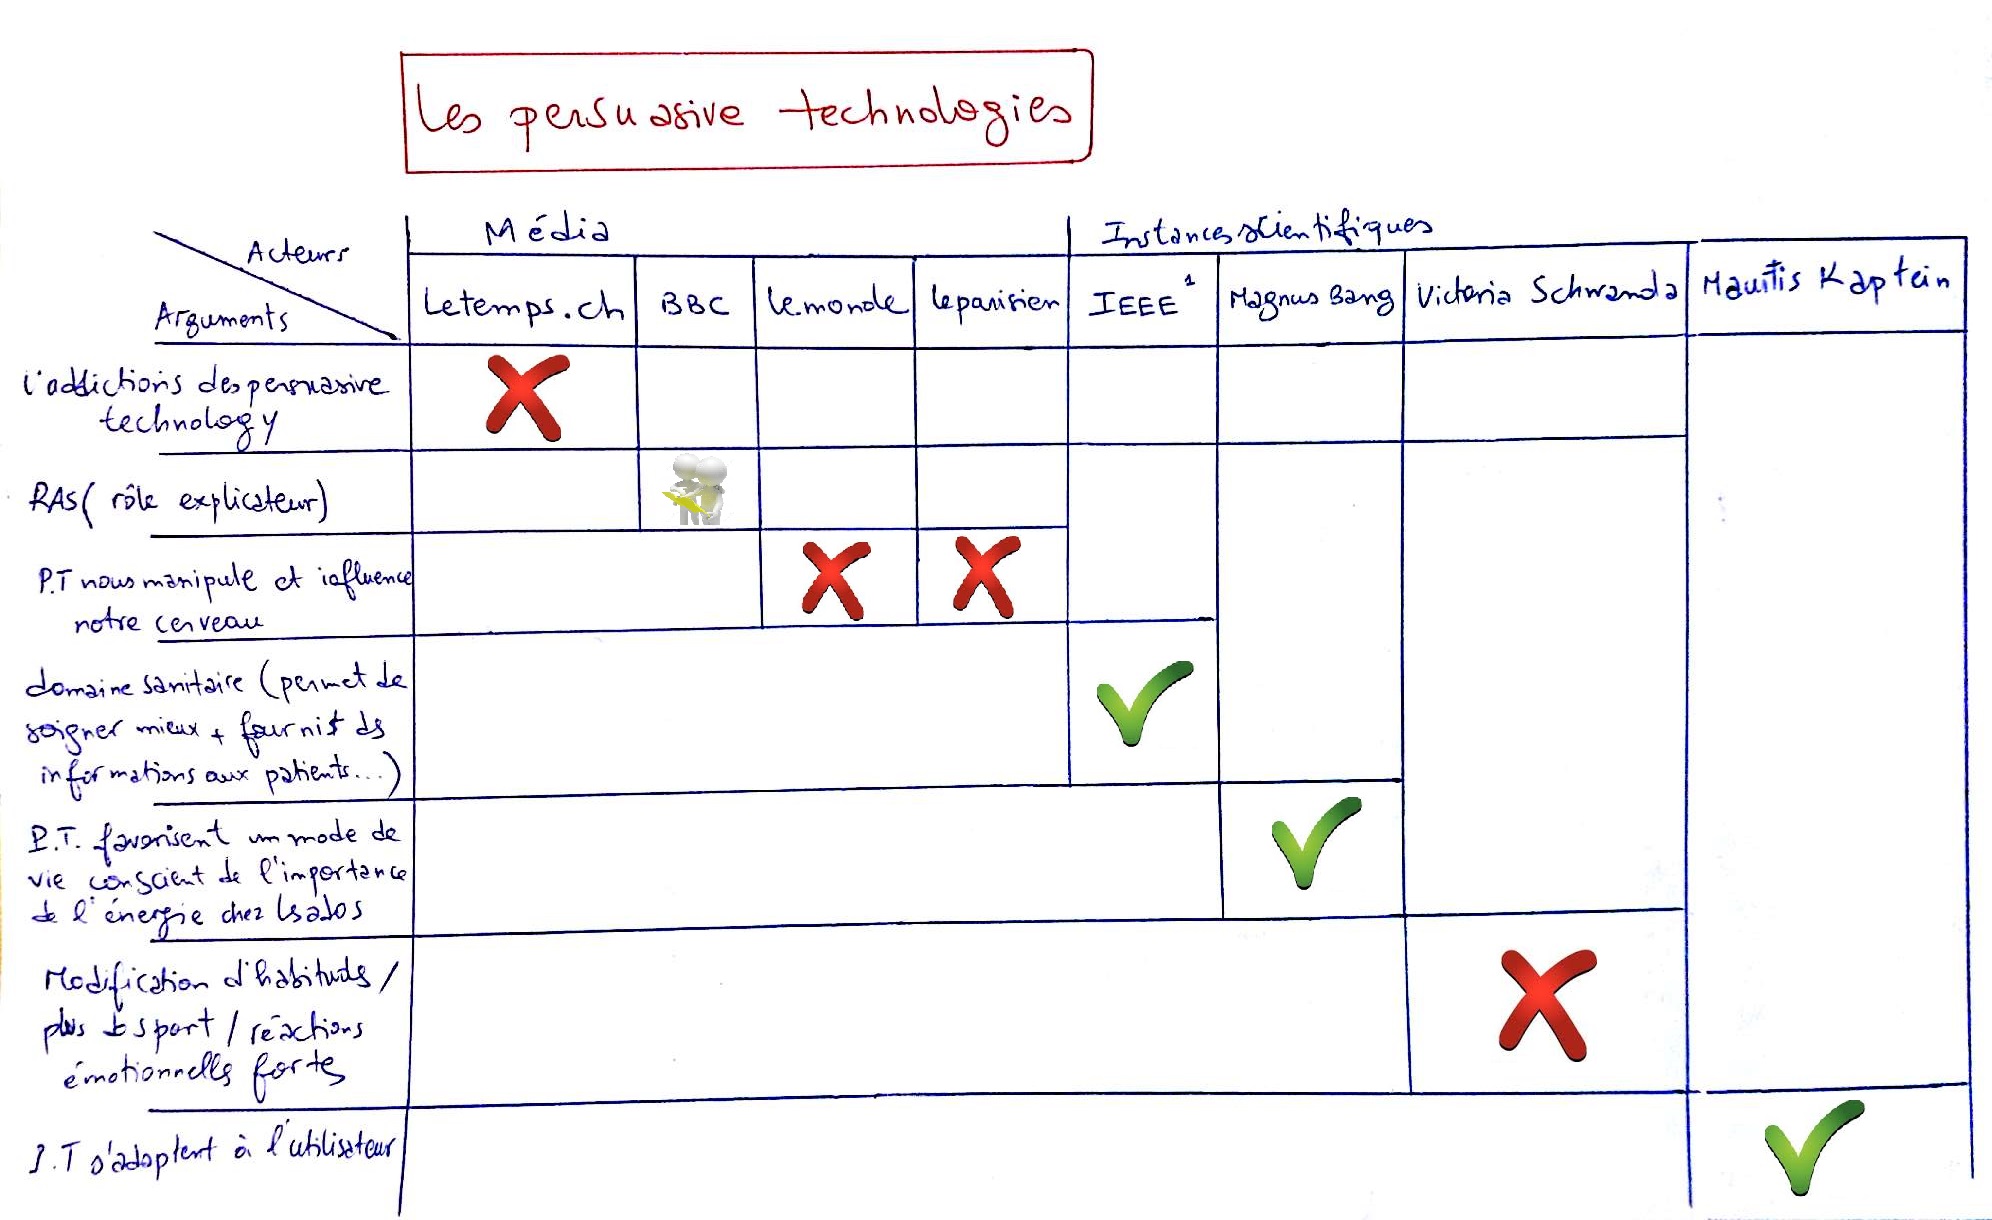 Les persuasive technologies
Média
Instances scientifiques
Acteurs
Arguments
Letemps.ch
BBC
lemonde
leparisien
IEEE 1
Magnus Bang
Victoria Schwanda
Mauritis Kaptein
L'addictions des persuasive
technology
RAS( rôle explicateur)
P.T nous manipule et influence
notre cerveau
domaine sanitaire (permet de
soigner mieux + fournit ds
informations aux patients...)
P.T. favorisent un mode de
vie conscient de l'importance
de l'énergie chez ls ados
Modification d'habituds /
plus de sport / réactions
émotionnells forts
P.T s'adaptent à l'utilisateur